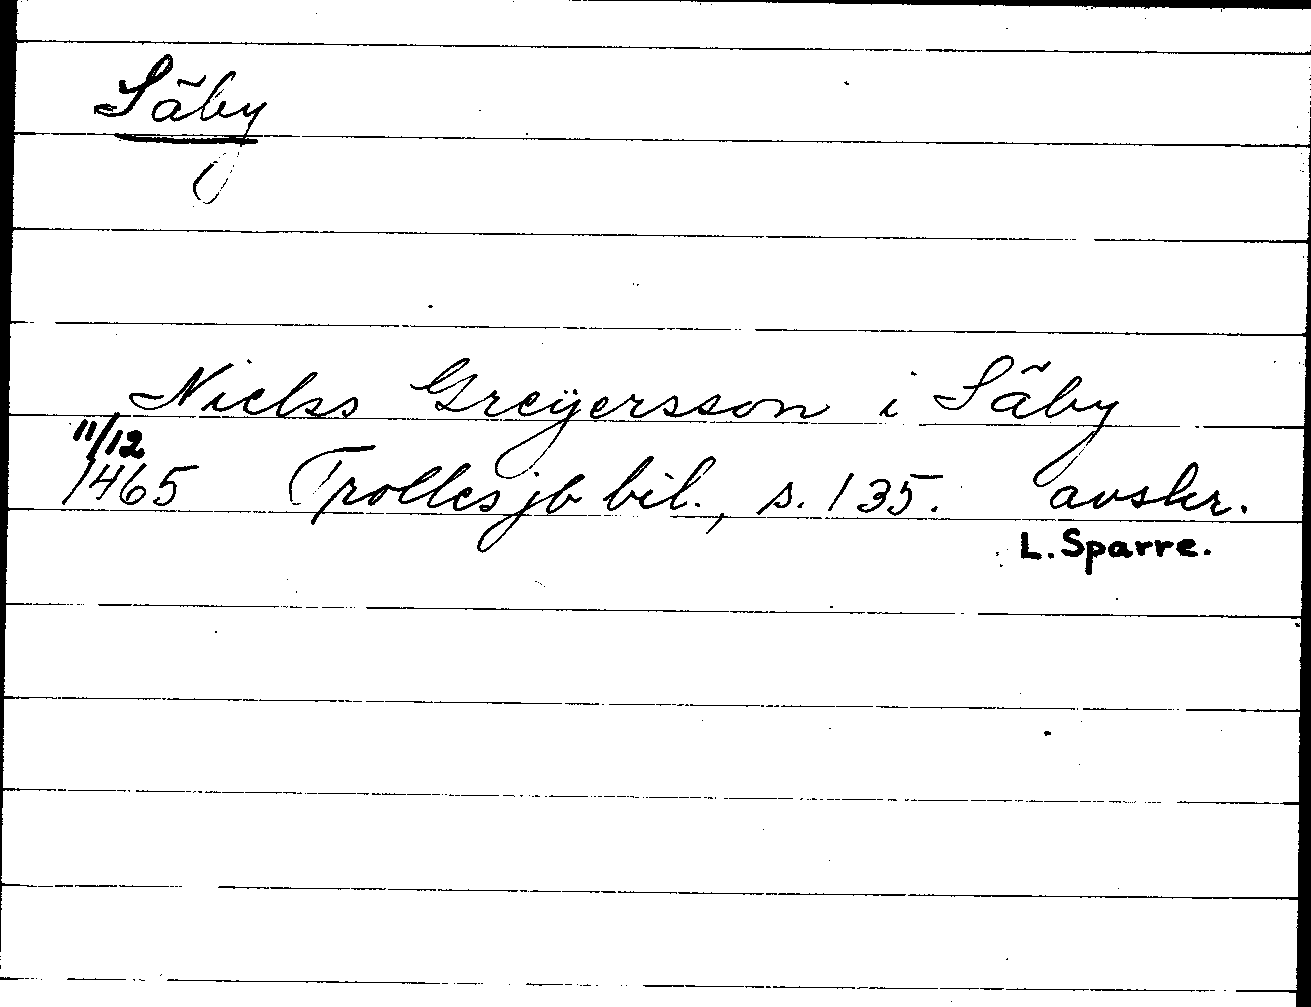 Säby
Nielss Greÿersson i Säby
11/12
1465 Trolles jb bil., s. 135. avskr.
L. Sparre.